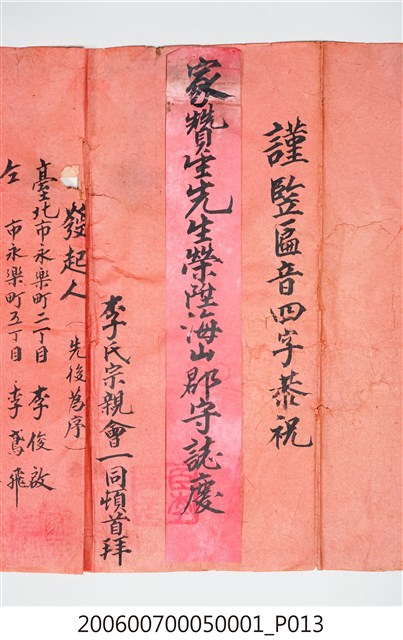 謹竪匾音四字恭祝
家贊生先生榮陞海山郡守誌慶
李氏宗親會一同頓首拜
發起人(先後為序)
臺北市永樂町二丁目 李俊啟
仝 市永樂町五丁目 李鳶飛
200600700050001_P013